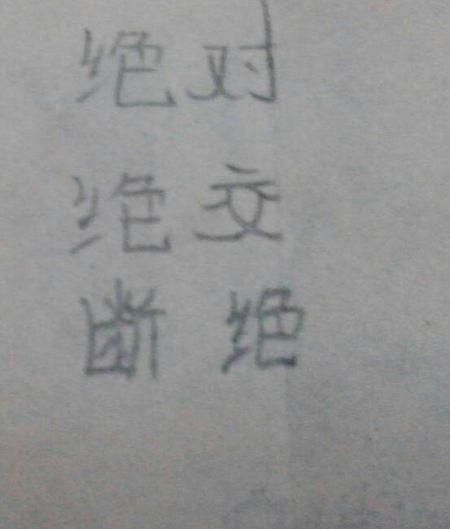 绝对
绝交
断绝